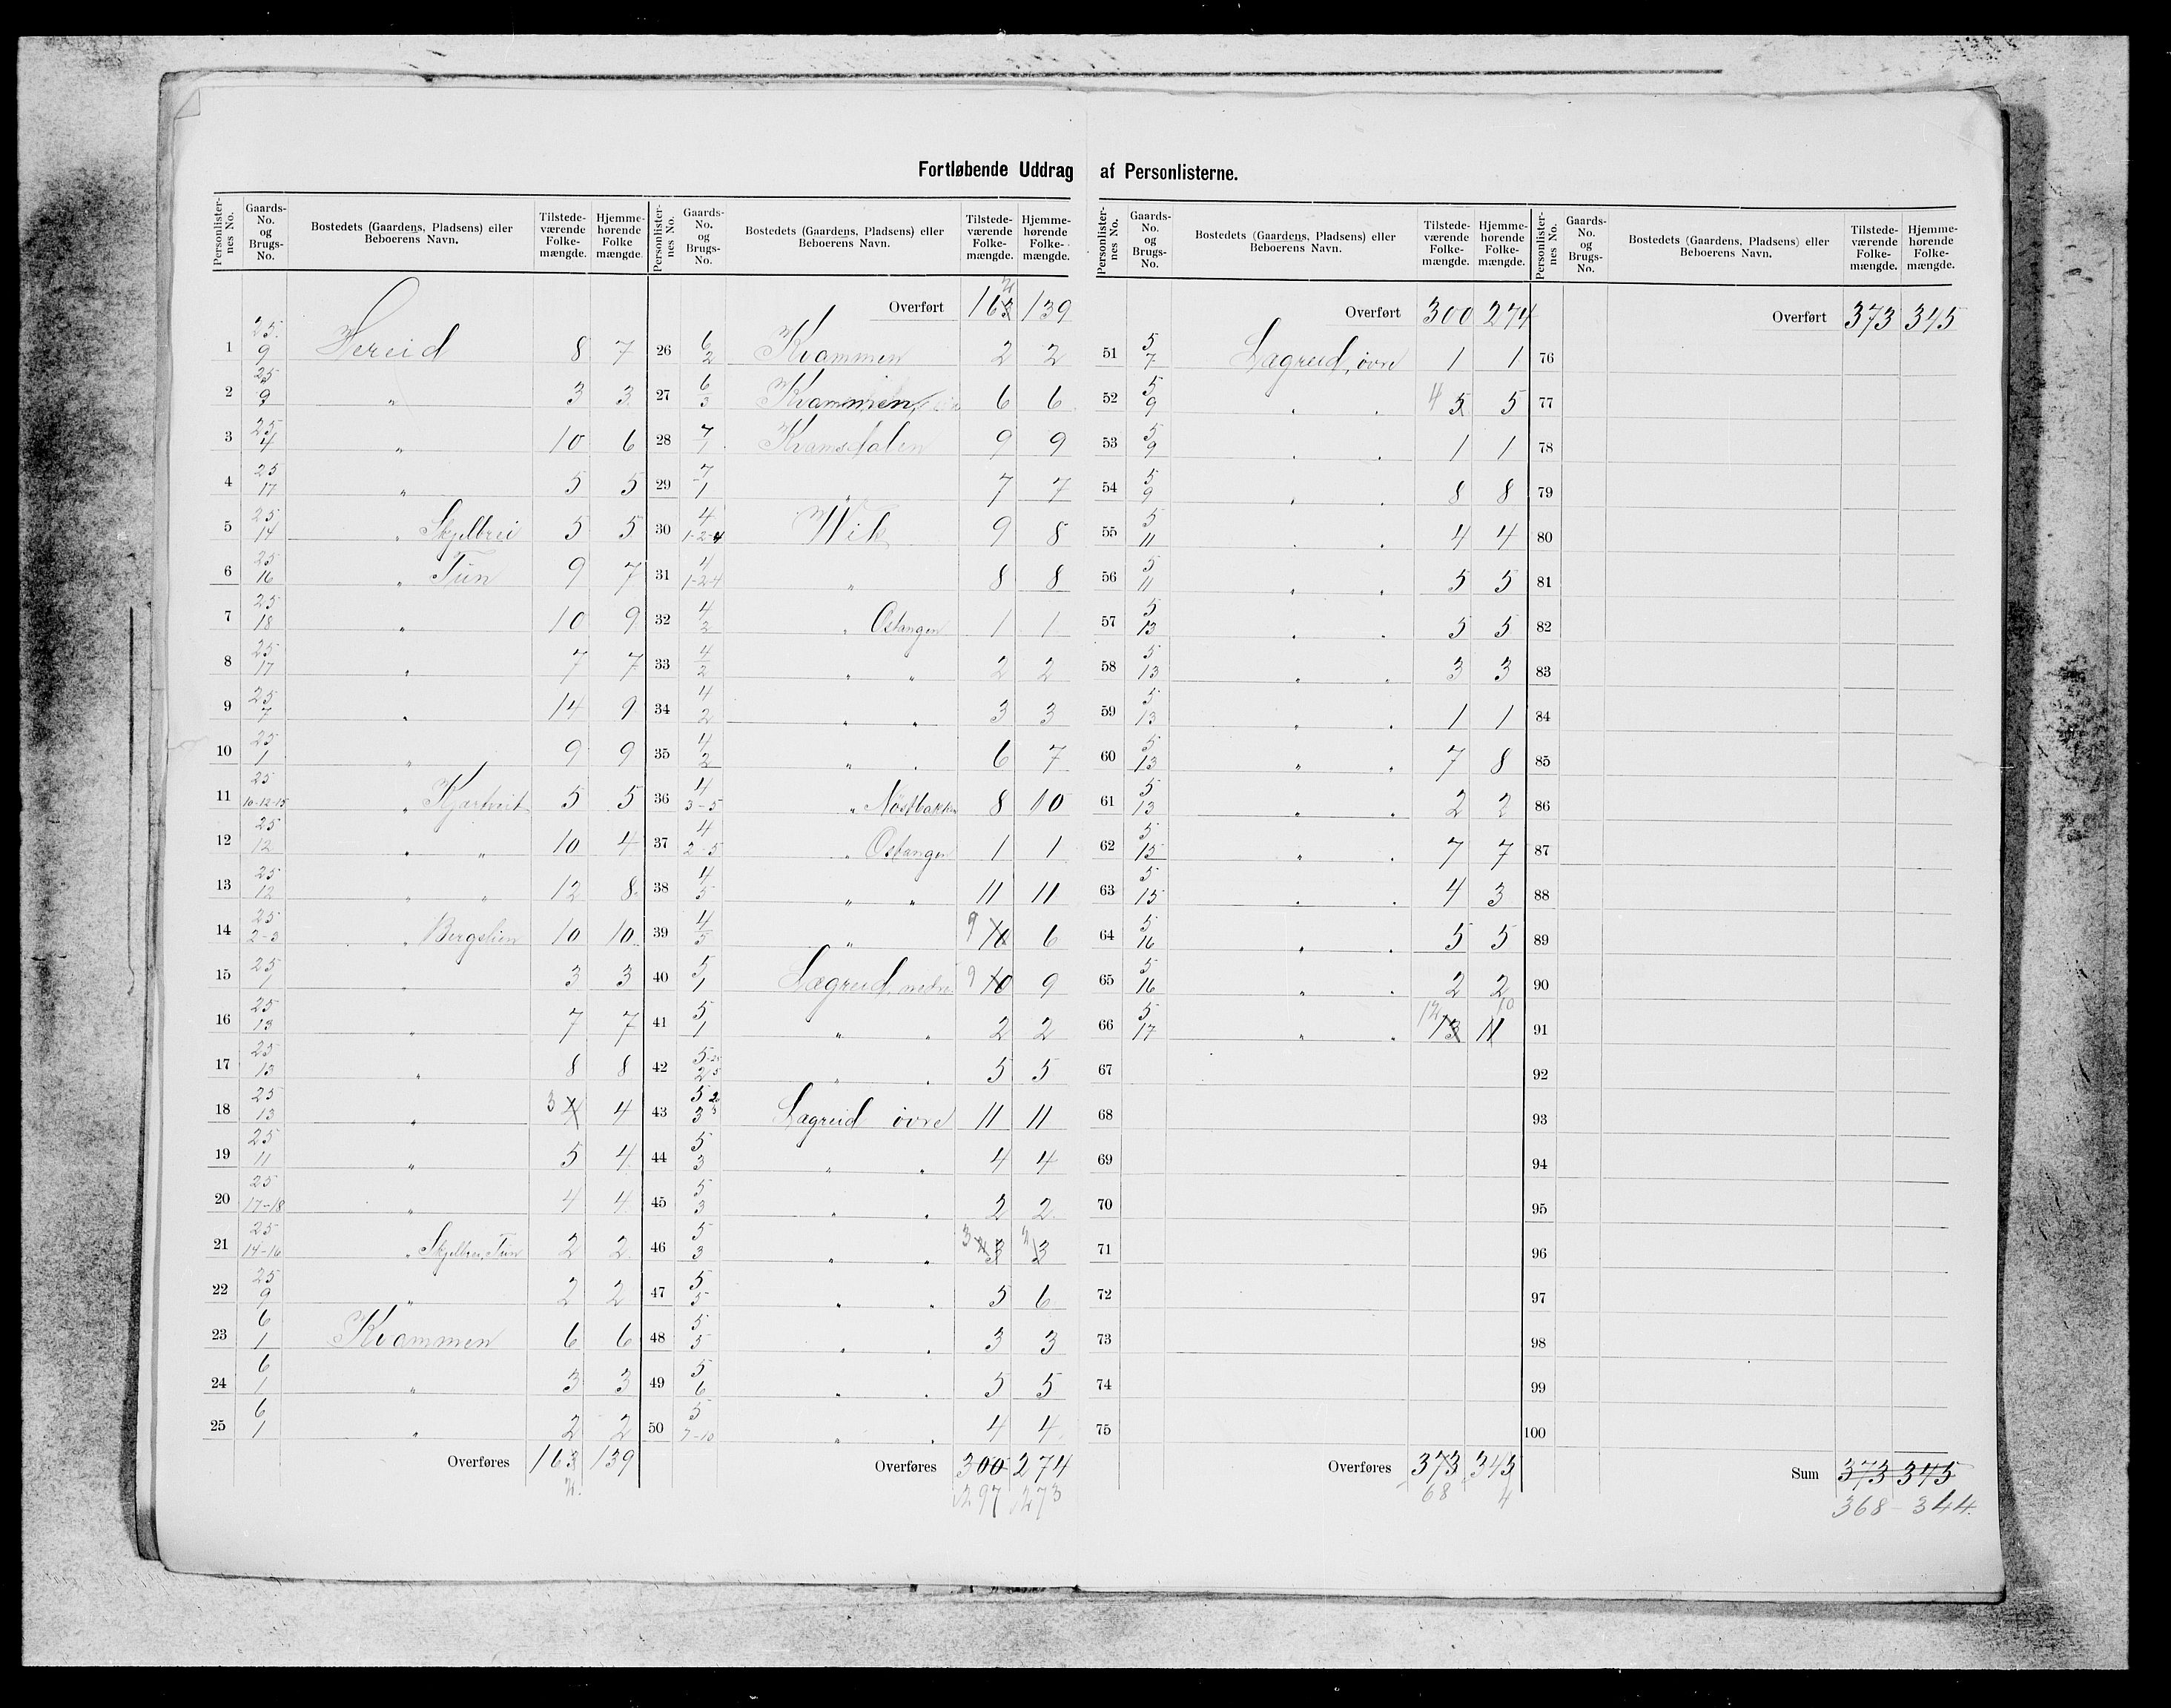 Fortløbende Uddrag af Personlisterne.
Personlisternes No. Gaards-No. og Brugs-No. Bostedets (Gaardens, Pladsens) eller Beboerens Navn. Tilstedeværende Folkemængde. Hjemmehørende Folkemængde.
1 25 9 Hereid 8 7
2 25 9 " 3 3
3 25 4 " 10 6
4 25 17 " 5 5
5 25 14 " Skjelbrei 5 5
6 25 16 " Tun 9 7
7 25 18 " 10 9
8 25 17 " 7 7
9 25 7 " 14 9
10 25 1 " 9 9
11 25 10-12-15 " Kjartveit 5 5
12 25 12 " " 10 4
13 25 12 " " 12 8
14 25 2-3 " Bergslien 10 10
15 25 1 " 3 3
16 25 13 " 7 7
17 25 13 " 8 8
18 25 13 " 3 4 4
19 25 11 " 5 4
20 25 17-18 " 4 4
21 25 14-16 " Skjelbrei, Tun 2 2
22 25 9 " 2 2
23 6 1 Kvammen 6 6
24 6 1 " 3 3
25 6 1 " 2 2
Overføres 163 139
2
Personlisternes No. Gaards-No. og Brugs-No. Bostedets (Gaardens, Pladsens) eller Beboerens Navn. Tilstedeværende Folkemængde. Hjemmehørende Folkemængde.
Overført 163 2 139
26 6 2 Kvammen 2 2
27 6 3 Kvammen 6 6
28 7 1 Kvamsdalen 9 9
29 7 1 " 7 7
30 4 1-2-4 Wik 9 8
31 4 1-2-4 " 8 8
32 4 2 " Ostangen 1 1
33 4 2 " " 2 2
34 4 2 " " 3 3
35 4 2 " " 6 7
36 4 3-5 " Nöstbakken 8 10
37 4 2-5 " Ostangen 1 1
38 4 5 " " 11 11
39 4 5 " 9 10 6
40 5 1 Lægreid, nedre 9 10 9
41 5 1 " " 2 2
42 5 2 " " 5 5
43 5 3 Lægreid övre 11 11
44 5 3 " " 4 4
45 5 3 " " 2 2
46 5 3 " " 3 3 2 3
47 5 5 " " 5 6
48 5 5 " " 3 3
49 5 6 " " 5 5
50 5 7-10 " " 4 4
Overføres 300 274
297 273
Personlisternes No. Gaards-No. og Brugs-No. Bostedets (Gaardens, Pladsens) eller Beboerens Navn. Tilstedeværende Folkemængde. Hjemmehørende Folkemængde.
Overført 300 274
51 5 7 Lægreid, övre 1 1
52 5 9 " " 4 5 5
53 5 9 " " 1 1
54 5 9 " 8 8
55 5 11 " " 4 4
56 5 11 " " 5 5
57 5 13 " " 5 5
58 5 13 " " 3 3
59 5 13 " " 1 1
60 5 13 " " 7 8
61 5 13 " " 2 2
62 5 15 " " 7 7
63 5 15 " " 4 3
64 5 16 " " 5 5
65 5 16 " " 2 2
66 5 17 " " 12 13 10 11
67
68
69
70
71
72
73
74
75
Overføres 373 345
68 4
Personlisternes No. Gaards-No. og Brugs-No. Bostedets (Gaardens, Pladsens) eller Beboerens Navn. Tilstedeværende Folkemængde. Hjemmehørende Folkemængde.
Overført 373 345
76
77
78
79
80
81
82
83
84
85
86
87
88
89
90
91
92
93
94
95
96
97
98
99
100
Sum 373 345
368 - 344.